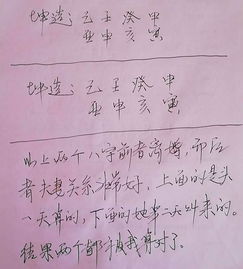 坤造:乙 壬 癸 甲
丑 申 亥 寅
坤造:乙 壬 癸 甲
丑 申 亥 寅
以上两个八字前者离婚,而后
者夫妻关系非常好,上面的是头
一天算的,下面的她第二天叫来的。
结果两个都被我算对了。